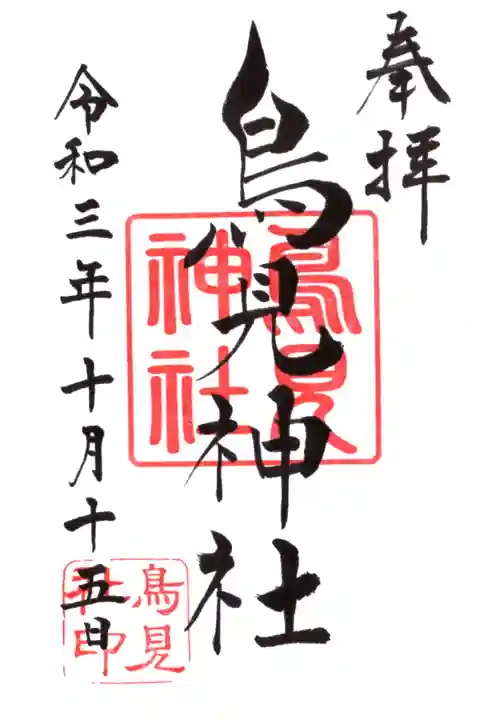 奉拝
鳥見神社
鳥見
神社
令和三年十月十五日
鳥見
社印